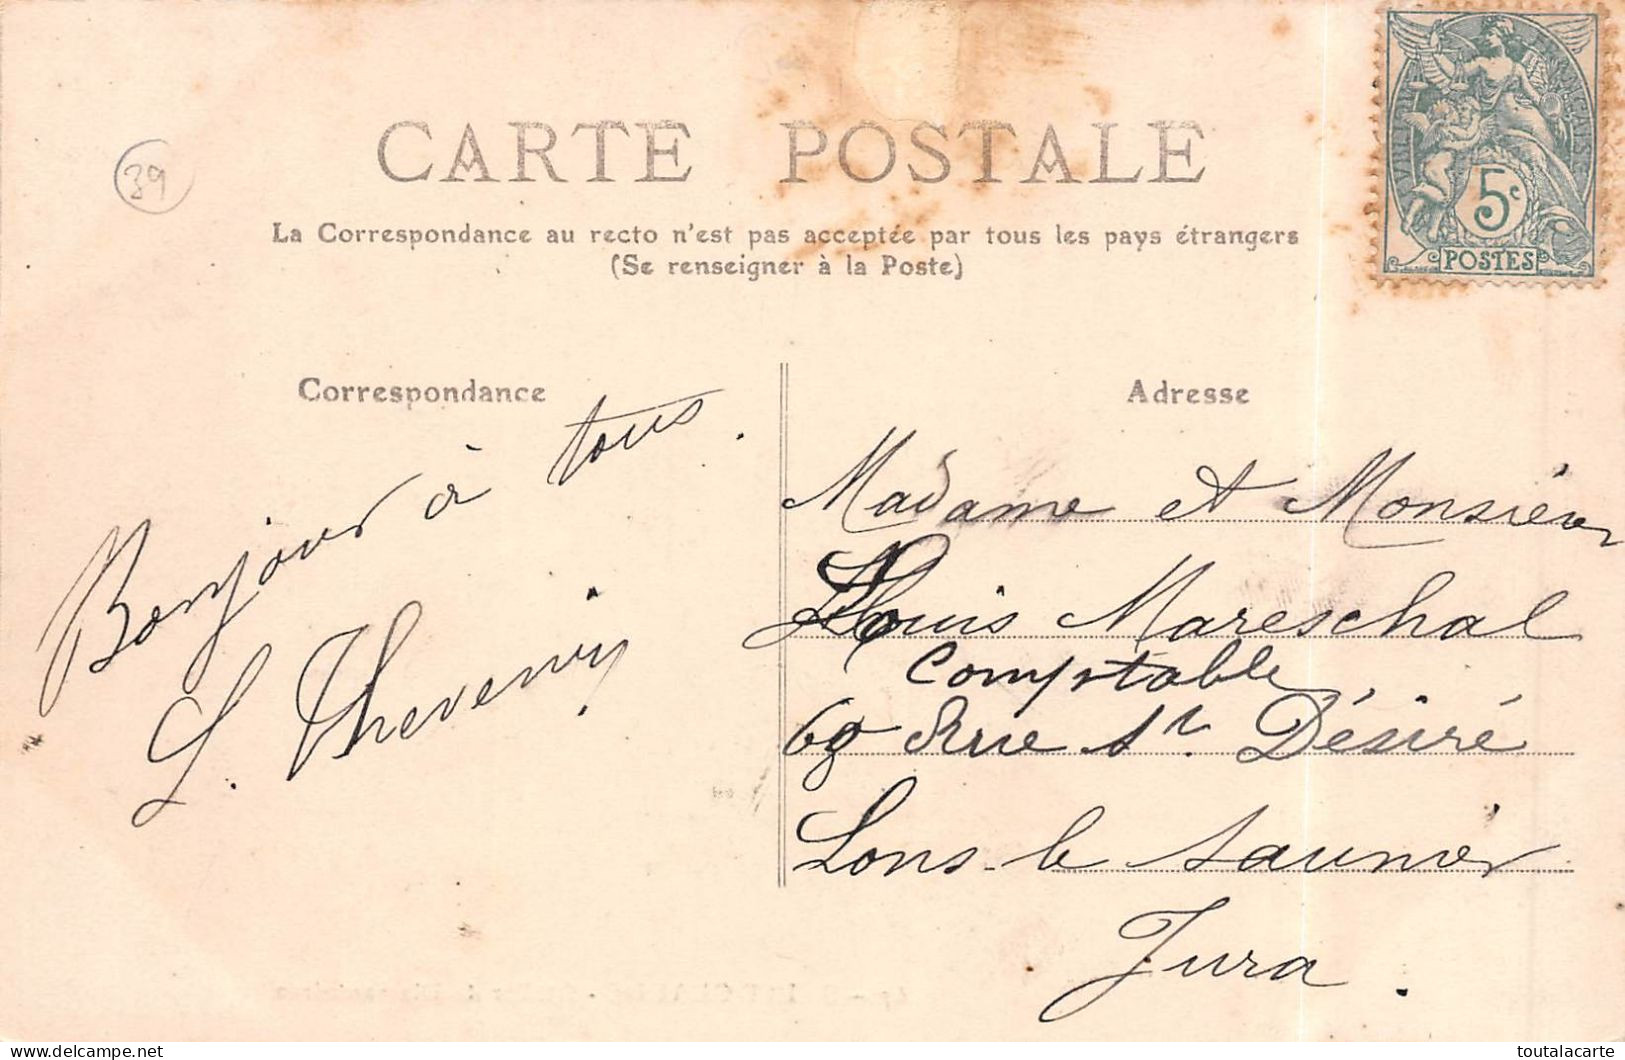 39
CARTE POSTALE
La Correspondance au recto n'est pas acceptée par tous les pays étrangers
(Se renseigner à la Poste)
5c
POSTES
Correspondance
Bonjour à tous.
L. Thevenin
Adresse
Madame et Monsieur
Louis Mareschal
Comptable
69 Rue St. Désiré
Lons-le Saunier
Jura.
www.delcampe.net
toutalacarte